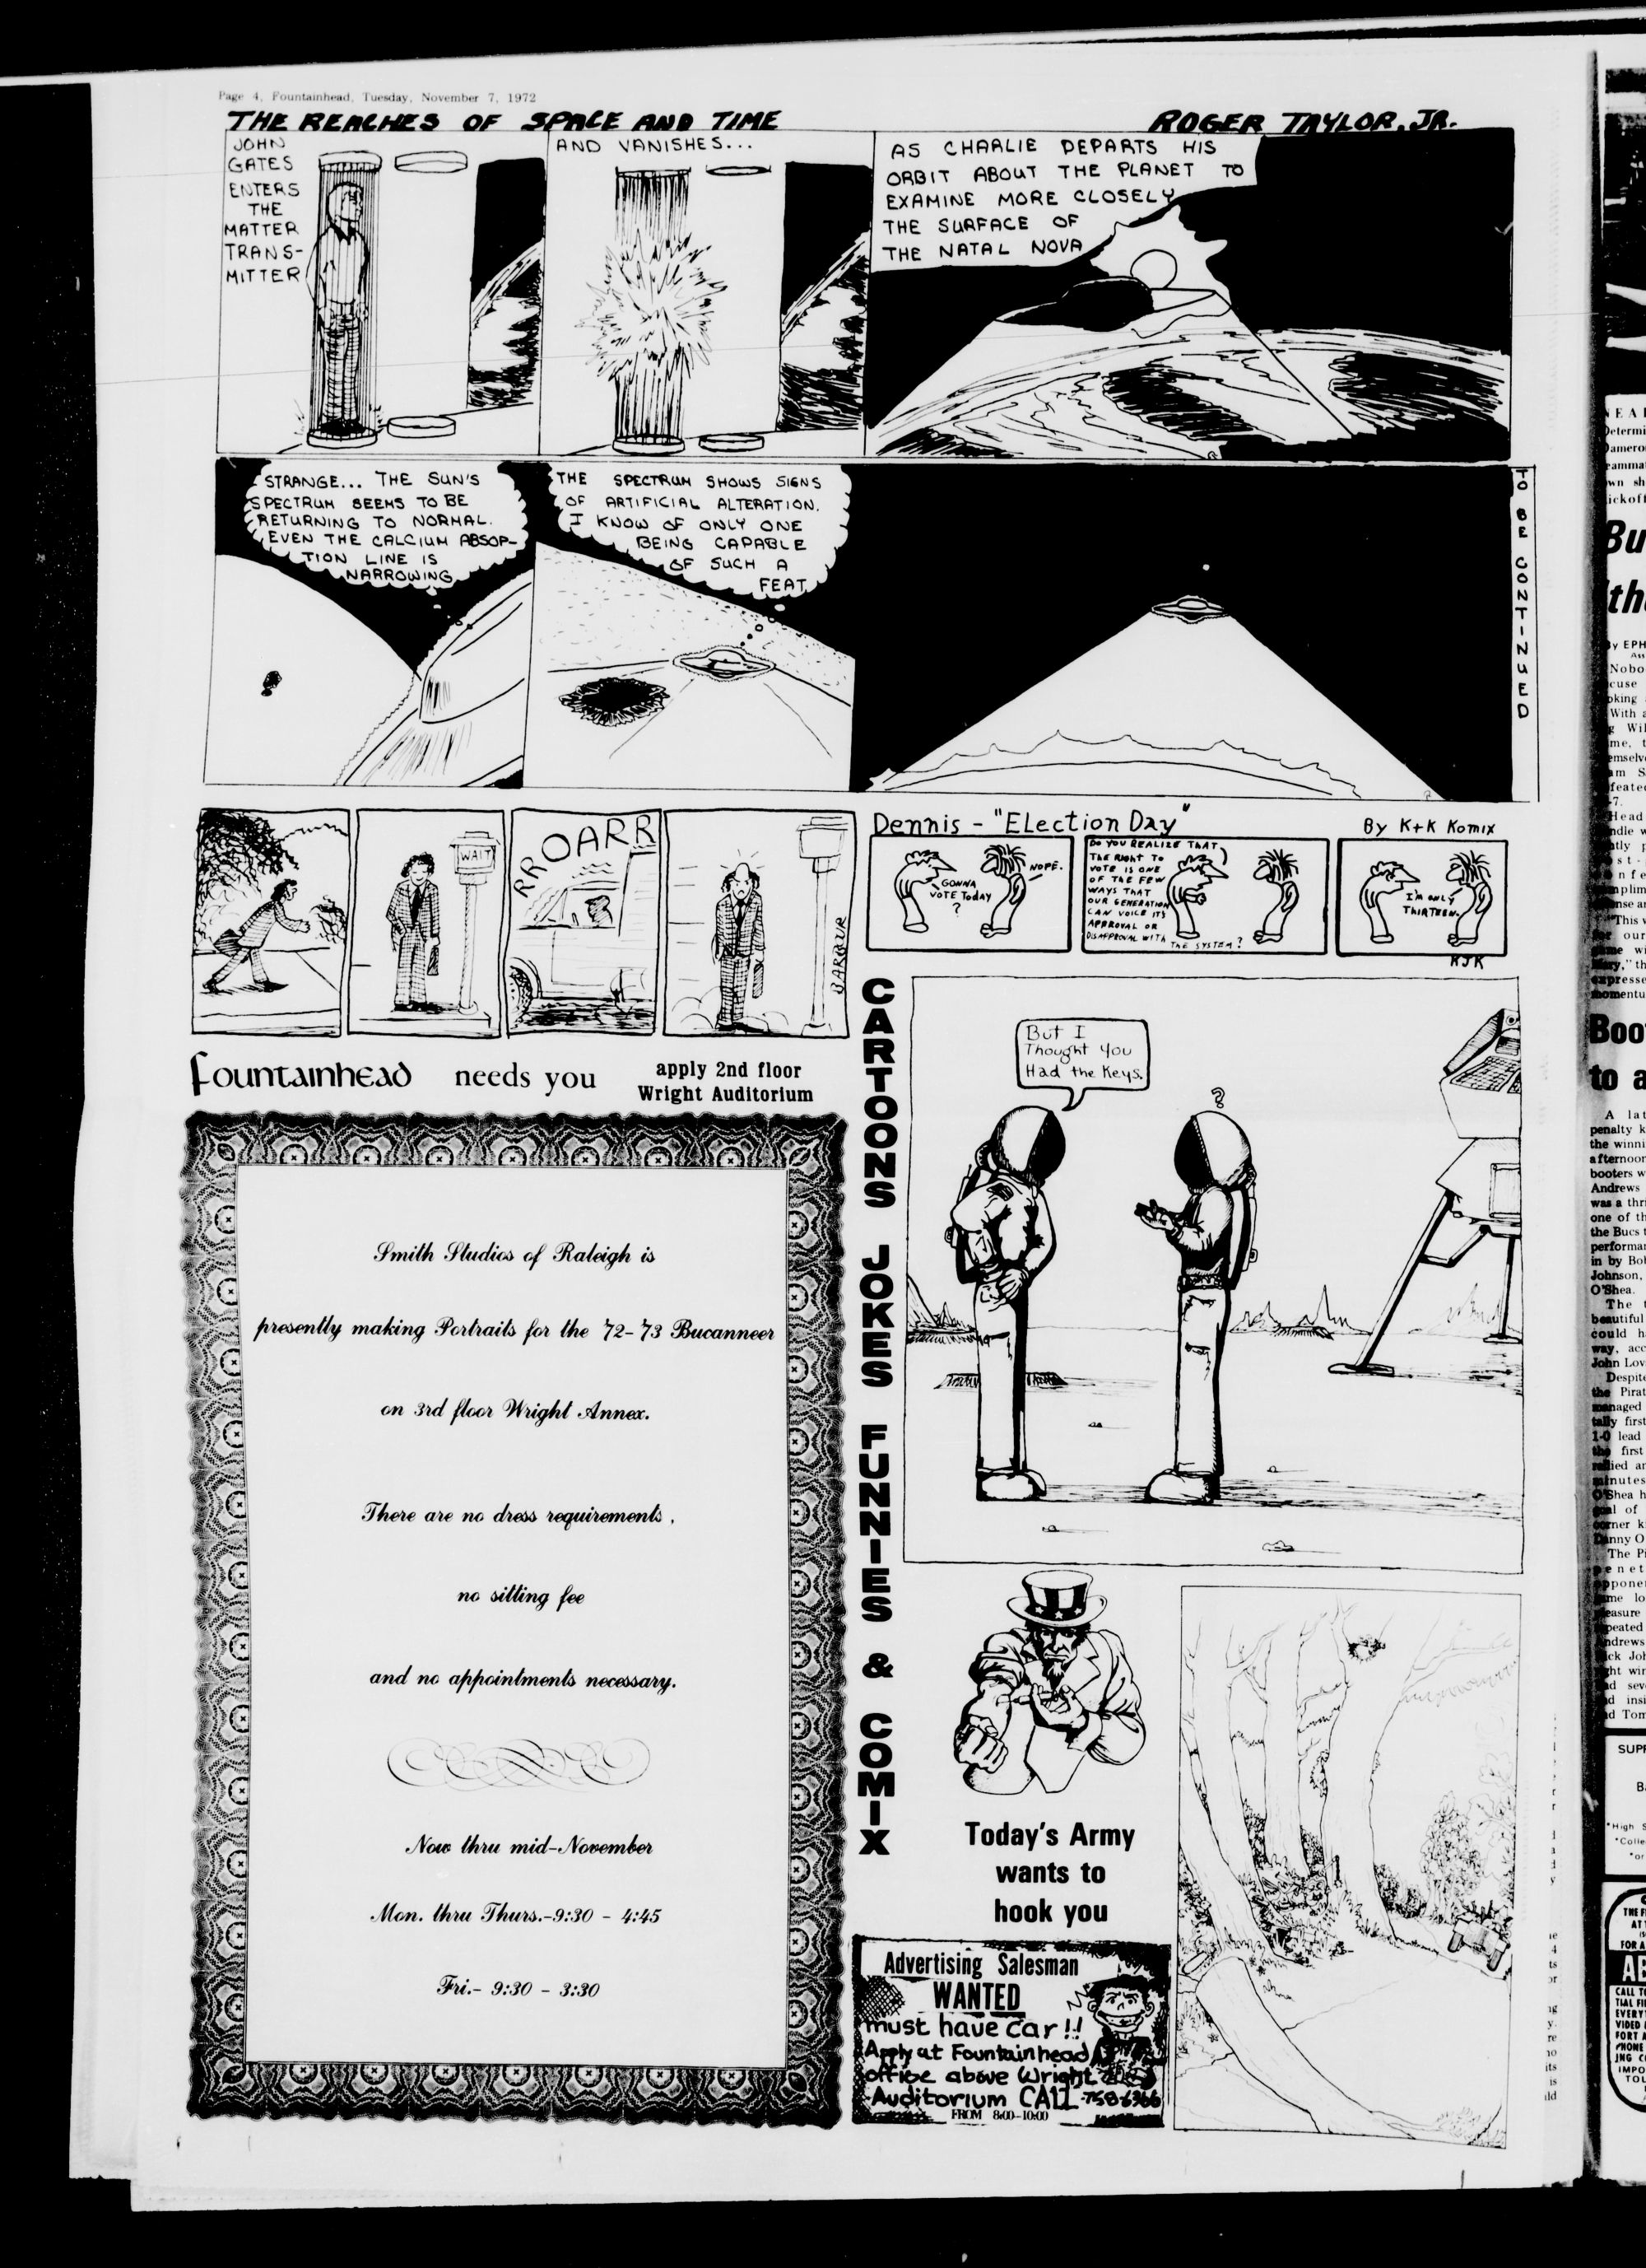 Page 4, Fountainhead, Tuesday, November 7, 1972
THE REACHES OF SPACE AND TIME
ROGER TAYLOR, JR.
JOHN
GATES
ENTERS
THE
MATTER
TRANS-
MITTER
AND VANISHES...
AS CHARLIE DEPARTS HIS
ORBIT ABOUT THE PLANET TO
EXAMINE MORE CLOSELY
THE SURFACE OF
THE NATAL NOVA
STRANGE... THE SUN'S
SPECTRUM SEEMS TO BE
RETURNING TO NORMAL.
EVEN THE CALCIUM ABSOP-
TION LINE IS
NARROWING
THE SPECTRUM SHOWS SIGNS
OF ARTIFICIAL ALTERATION.
I KNOW OF ONLY ONE
BEING CAPABLE
OF SUCH A
FEAT
TO BE CONTINUED
WAIT
RROARR
BARBUR
Dennis - "Election Day"
By K+K Komix
GONNA
VOTE Today
?
NOPE.
DO YOU REALIZE THAT
THE RIGHT TO
VOTE IS ONE
OF THE FEW
WAYS THAT
OUR GENERATION
CAN VOICE ITS
APPROVAL OR
DISAPPROVAL WITH
THE SYSTEM?
I'M ONLY
THIRTEEN.
KJK
fountainhead needs you
apply 2nd floor
Wright Auditorium
CARTOONS JOKES FUNNIES & COMIX
But I
Thought You
Had the Keys.
?
Smith Studios of Raleigh is
presently making Portraits for the '72-'73 Bucanneer
on 3rd floor Wright Annex.
There are no dress requirements,
no sitting fee
and no appointments necessary.
Now thru mid-November
Mon. thru Thurs.-9:30 - 4:45
Fri.- 9:30 - 3:30
Today's Army
wants to
hook you
Advertising Salesman
WANTED
must have car!!
Apply at Fountainhead
office above Wright
Auditorium CALL 758-6366
FROM 8:00-10:00